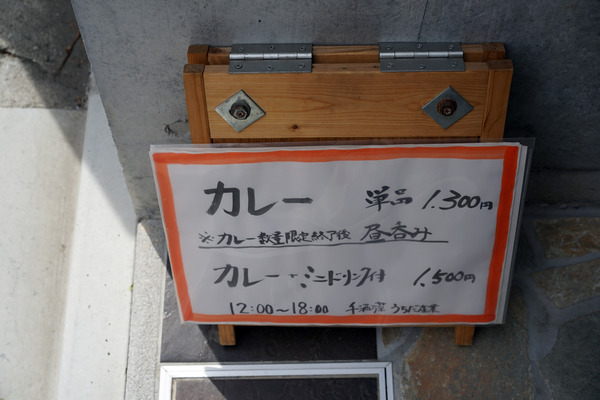 カレー 単品 1.300円
※カレー数量限定終了後 昼呑み
カレー・ミニドリンク付 1.500円
12:00〜18:00